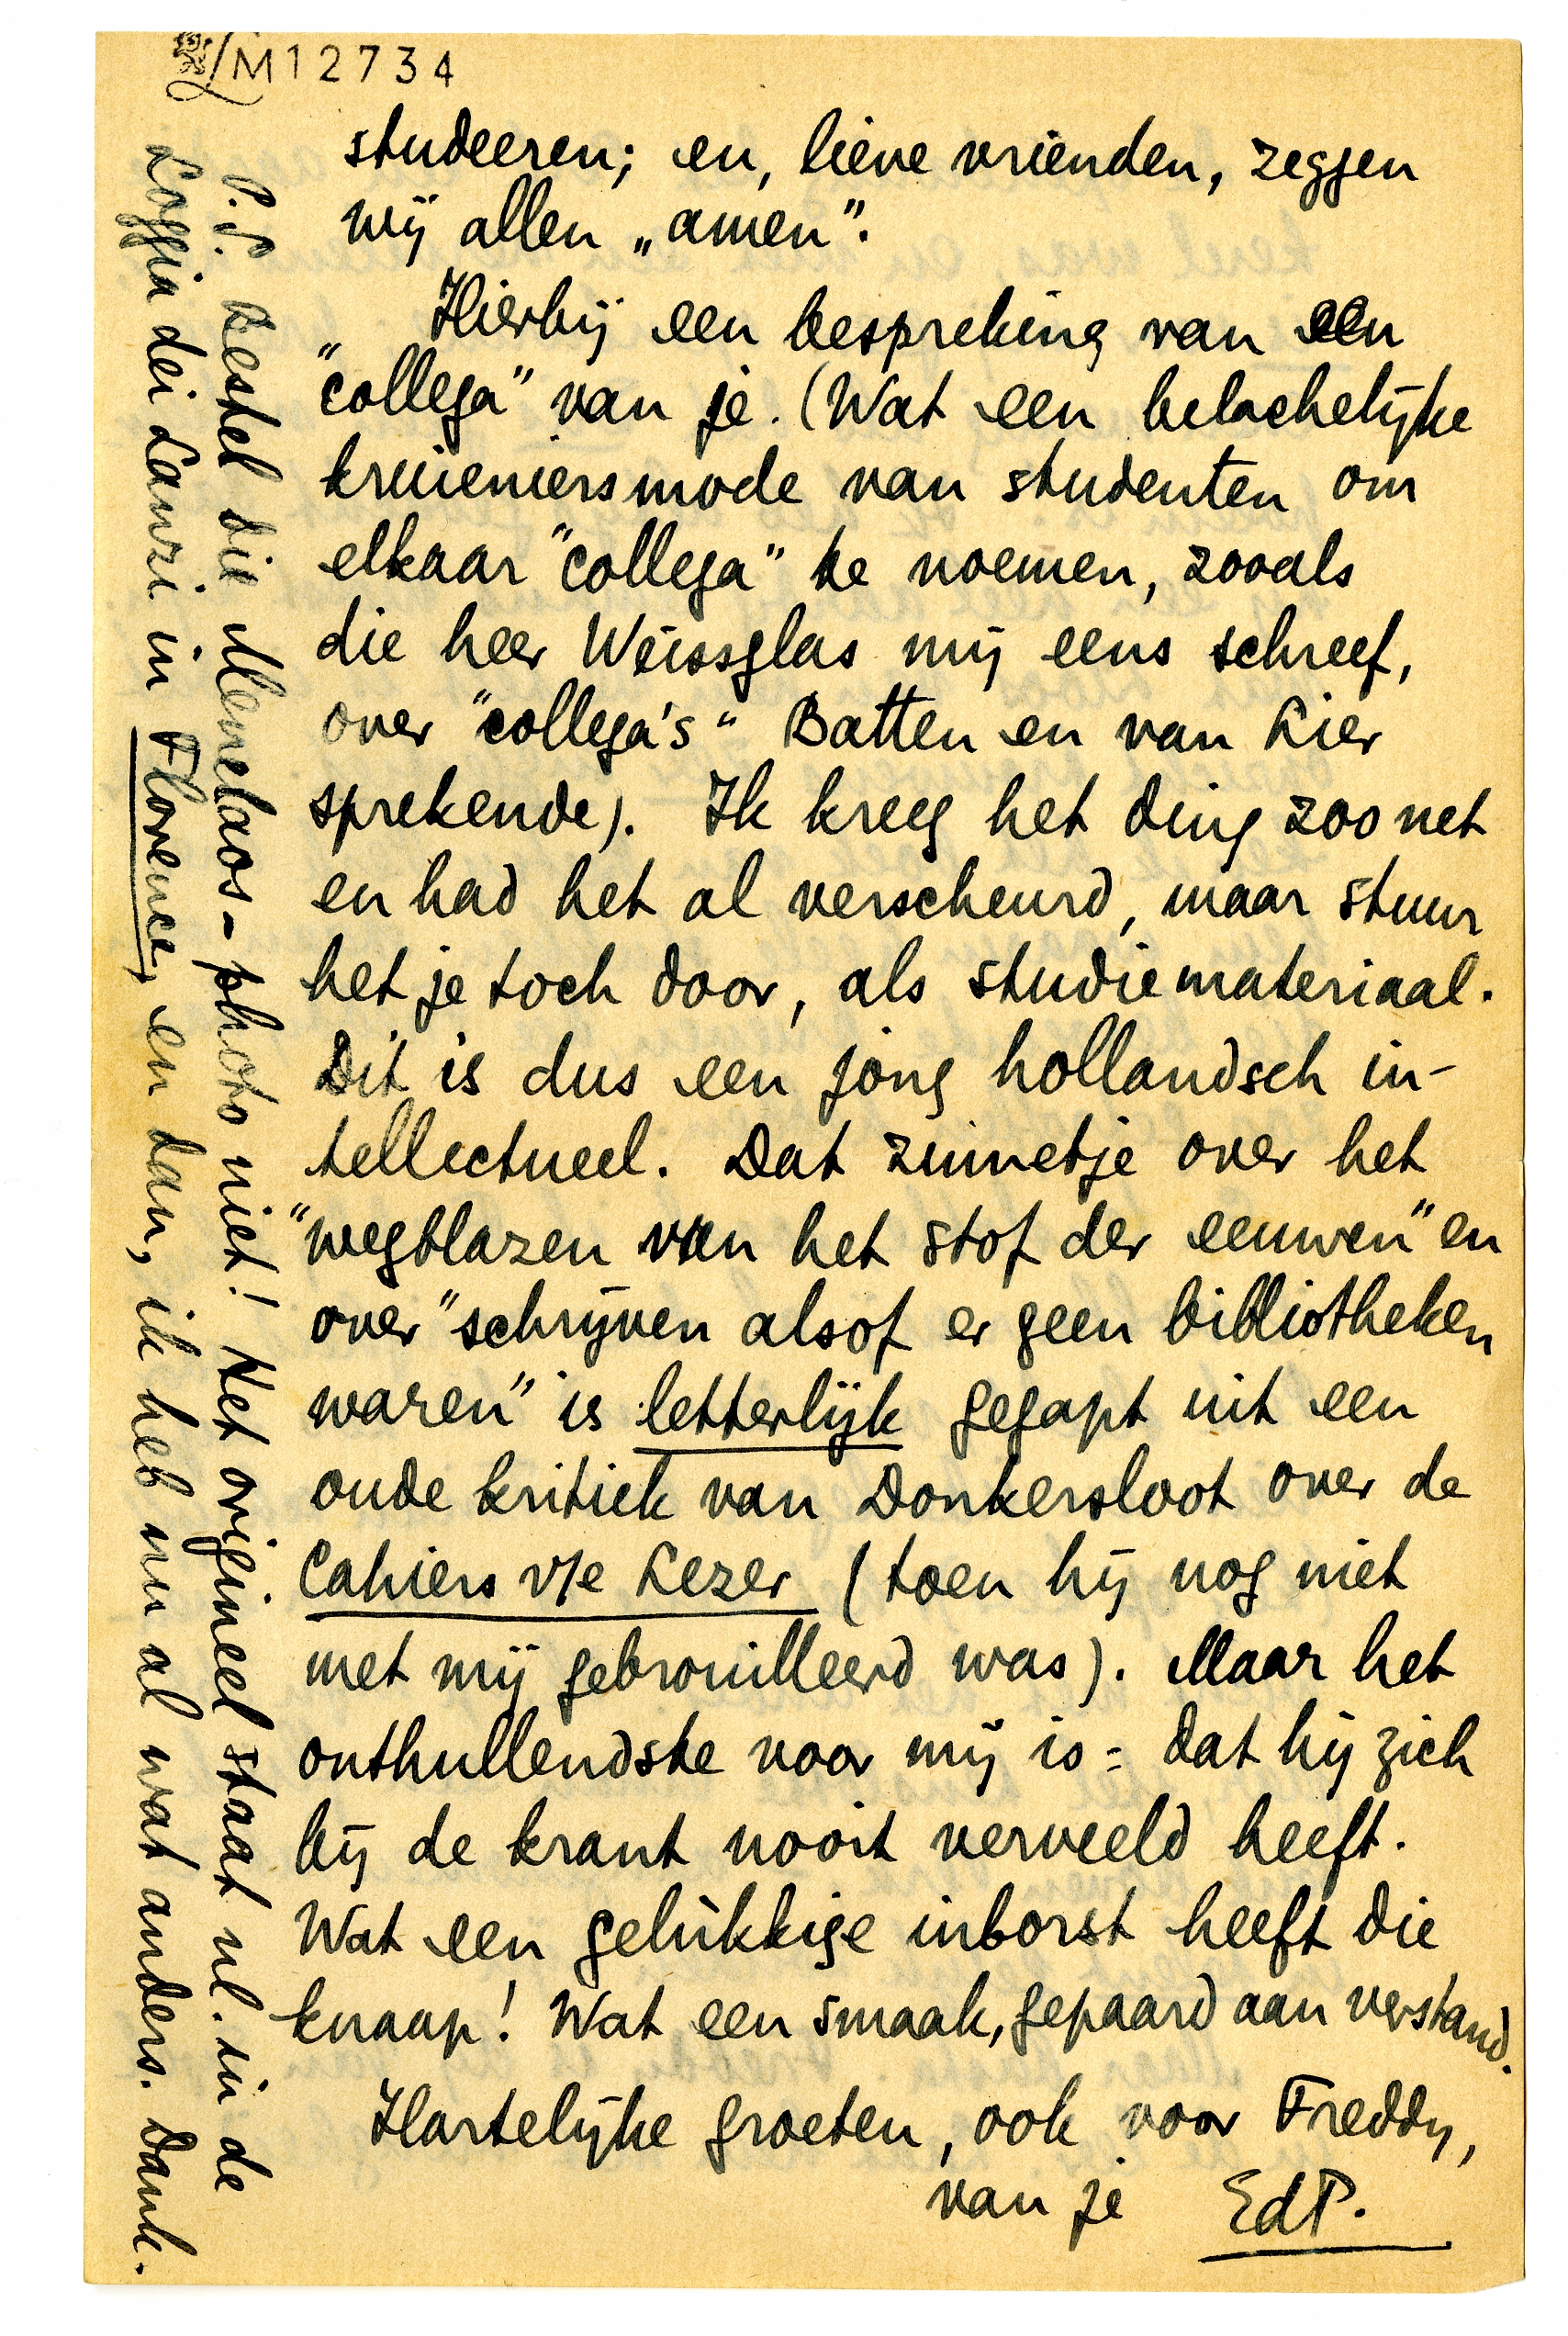 M12734
studeeren; en, lieve vrienden, zeggen
wij allen „amen”.
Hierbij een bespreking van een
“collega” van je. (Wat een belachelijke
kruieniersmode van studenten om
elkaar “collega” te noemen, zooals
die heer Weissglas mij eens schreef,
over “collega's” Batten en van Lier
sprekende). Ik kreeg het ding zoo net
en had het al verscheurd, maar stuur
het je toch door, als studiemateriaal.
Dit is dus een jong hollandsch in-
tellectueel. Dat zinnetje over het
“wegblazen van het stof der eeuwen” en
over “schrijven alsof er geen bibliotheken
waren” is letterlijk gegapt uit een
oude kritiek van Donkersloot over de
Cahiers v/e Lezer (toen hij nog niet
met mij gebrouilleerd was). Maar het
onthullendste voor mij is: dat hij zich
bij de krant nooit verveeld heeft.
Wat een gelukkige inborst heeft die
knaap! Wat een smaak, gepaard aan verstand.
Hartelijke groeten, ook voor Freddy,
van je EdP.
P.S. Bestel die Menelaos-photo niet! Het origineel staat nl. in de
Loggia dei Lanzi in Florence, en dan, ik heb nu al wat anders. Dank.